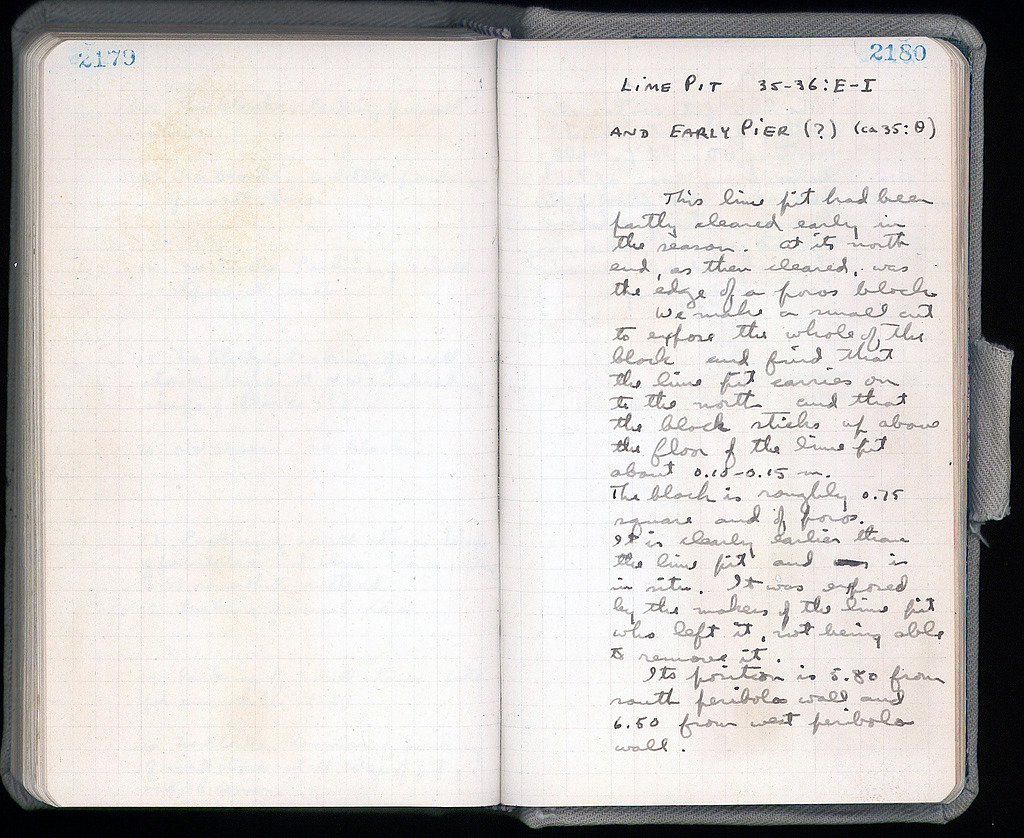 2179
2180
LIME PIT 35-36:E-I
AND EARLY PIER (?) (ca 35:Θ)
This lime pit had been
partly cleared early in
the season. At its north
end, as then cleared, was
the edge of a poros block
We make a small cut
to expose the whole of the
block and find that
the lime pit carries on
to the north and that
the block sticks up above
the floor of the lime pit
about 0.10-0.15 m.
The block is roughly 0.75
square and of poros.
It is clearly earlier than
the lime pit and is
in situ. It was exposed
by the makers of the lime pit
who left it, not being able
to remove it.
Its position is 5.80 from
south peribolos wall and
6.50 from west peribolos
wall.